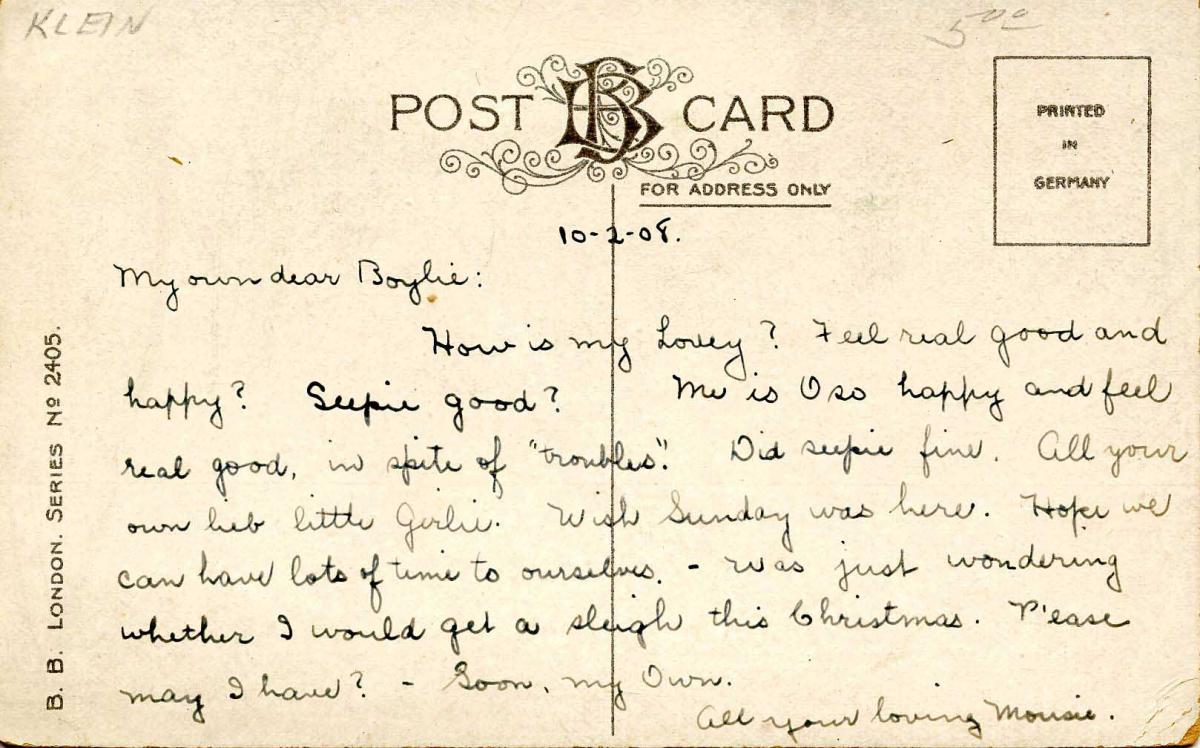 KLEIN
5.00
POST BB CARD
FOR ADDRESS ONLY
PRINTED
IN
GERMANY
B. B. LONDON. SERIES No 2405.
10-2-08.
My own dear Boylie:
How is my Lovey? Feel real good and
happy? Seepie good? Me is O so happy and feel
real good, in spite of "troubles". Did seepie fine. All your
own lieb little Girlie. Wish Sunday was here. Hope we
can have lots of time to ourselves. - Was just wondering
whether I would get a sleigh this Christmas. P'ease
may I have? - Soon, my Own.
All your loving Mousie.